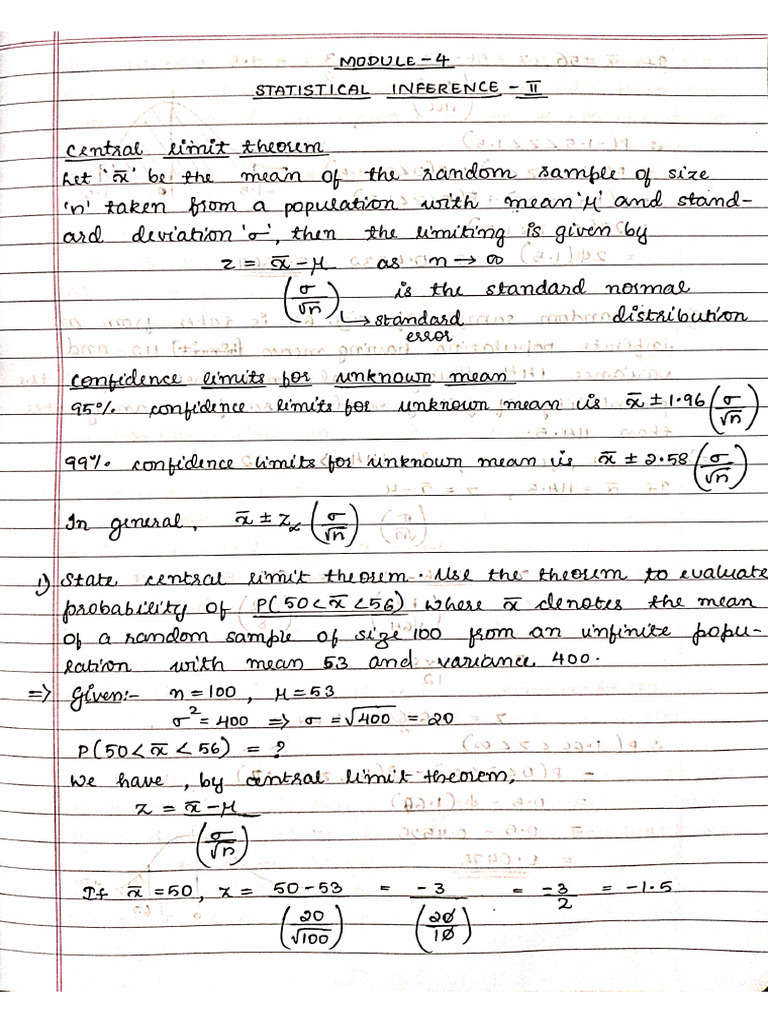 MODULE-4
STATISTICAL INFERENCE - II
Central limit theorem
Let 'x̄' be the mean of the random sample of size
'n' taken from a population with mean 'μ' and stand-
ard deviation 'σ', then the limiting is given by
z = x̄ - μ as n → ∞
(σ/√n) is the standard normal
↳ standard distribution
error
Confidence limits for unknown mean
95% confidence limits for unknown mean is x̄ ± 1.96 (σ/√n)
99% confidence limits for unknown mean is x̄ ± 2.58 (σ/√n)
In general, x̄ ± Zα (σ/√n)
1) State central limit theorem. Use the theorem to evaluate
probability of P(50 < x̄ < 56) where x̄ denotes the mean
of a random sample of size 100 from an infinite popu-
lation with mean 53 and variance 400.
=> Given:- n = 100, μ = 53
σ² = 400 => σ = √400 = 20
P(50 < x̄ < 56) = ?
We have, by central limit theorem,
z = x̄ - μ
(σ/√n)
If x̄ = 50, z = 50-53 / (20/√100) = -3 / (20/10) = -3/2 = -1.5